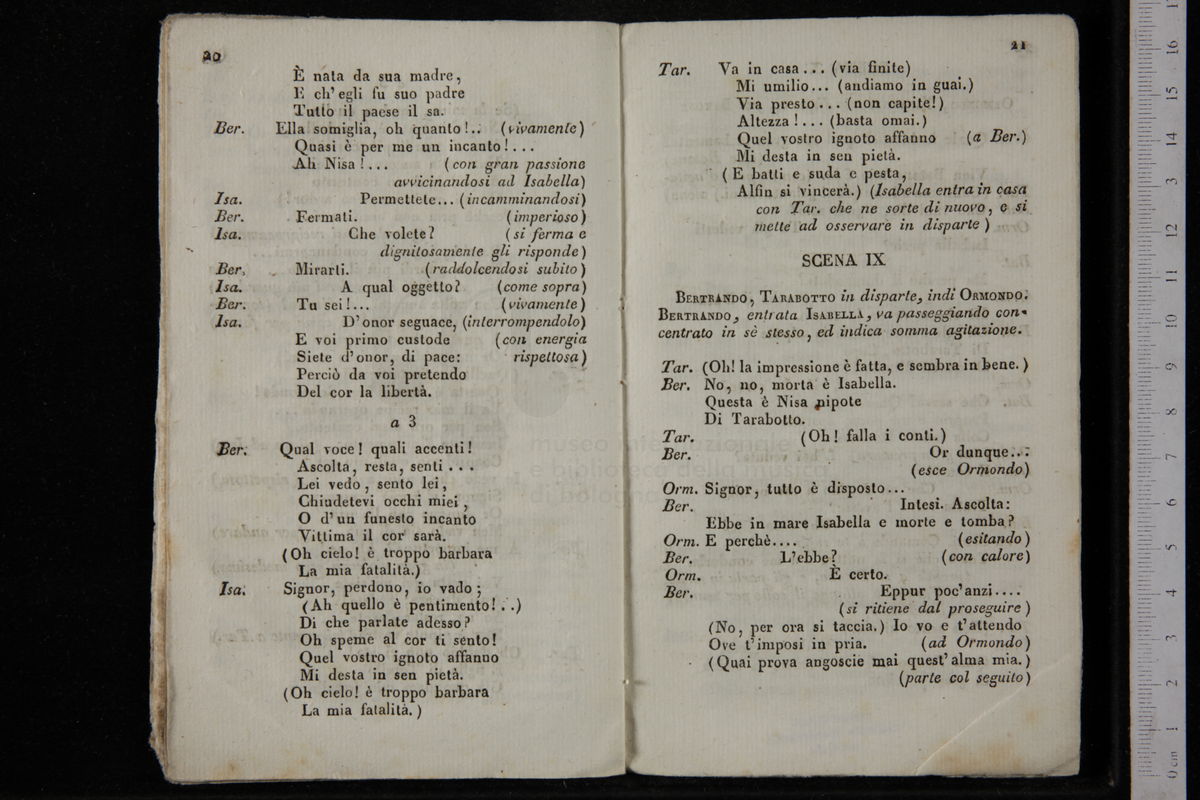 20
È nata da sua madre,
E ch' egli fu suo padre
Tutto il paese il sa.
Ber. Ella somiglia, oh quanto!.. (vivamente)
Quasi è per me un incanto!...
Ah Nisa!... (con gran passione
avvicinandosi ad Isabella)
Isa. Permettete... (incamminandosi)
Ber. Fermati. (imperioso)
Isa. Che volete? (si ferma e
dignitosamente gli risponde)
Ber. Mirarti. (raddolcendosi subito)
Isa. A qual oggetto? (come sopra)
Ber. Tu sei!... (vivamente)
Isa. D' onor seguace, (interrompendolo)
E voi primo custode (con energia
Siete d' onor, di pace: rispettosa)
Perciò da voi pretendo
Del cor la libertà.
a 3
Ber. Qual voce! quali accenti!
Ascolta, resta, senti...
Lei vedo, sento lei,
Chiudetevi occhi miei,
O d' un funesto incanto
Vittima il cor sarà.
(Oh cielo! è troppo barbara
La mia fatalità.)
Isa. Signor, perdono, io vado;
(Ah quello è pentimento!..)
Di che parlate adesso?
Oh speme al cor ti sento!
Quel vostro ignoto affanno
Mi desta in sen pietà.
(Oh cielo! è troppo barbara
La mia fatalità.)
21
Tar. Va in casa... (via finite)
Mi umilio... (andiamo in guai.)
Via presto... (non capite!)
Altezza!... (basta omai.)
Quel vostro ignoto affanno (a Ber.)
Mi desta in sen pietà.
(E batti e suda e pesta,
Alfin si vincerà.) (Isabella entra in casa
con Tar. che ne sorte di nuovo, e si
mette ad osservare in disparte)
SCENA IX.
BERTRANDO, TARABOTTO in disparte, indi ORMONDO.
BERTRANDO, entrata ISABELLA, va passeggiando con-
centrato in sè stesso, ed indica somma agitazione.
Tar. (Oh! la impressione è fatta, e sembra in bene.)
Ber. No, no, morta è Isabella.
Questa è Nisa nipote
Di Tarabotto.
Tar. (Oh! falla i conti.)
Ber. Or dunque...
(esce Ormondo)
Orm. Signor, tutto è disposto...
Ber. Intesi. Ascolta:
Ebbe in mare Isabella e morte e tomba?
Orm. E perchè.... (esitando)
Ber. L'ebbe? (con calore)
Orm. È certo.
Ber. Eppur poc'anzi....
(si ritiene dal proseguire)
(No, per ora si taccia.) Io vo e t'attendo
Ove t'imposi in pria. (ad Ormondo)
(Quai prova angoscie mai quest' alma mia.)
(parte col seguito)
museo internazionale
e biblioteca della musica
di bologna
0 cm 1 2 3 4 5 6 7 8 9 10 11 12 13 14 15 16